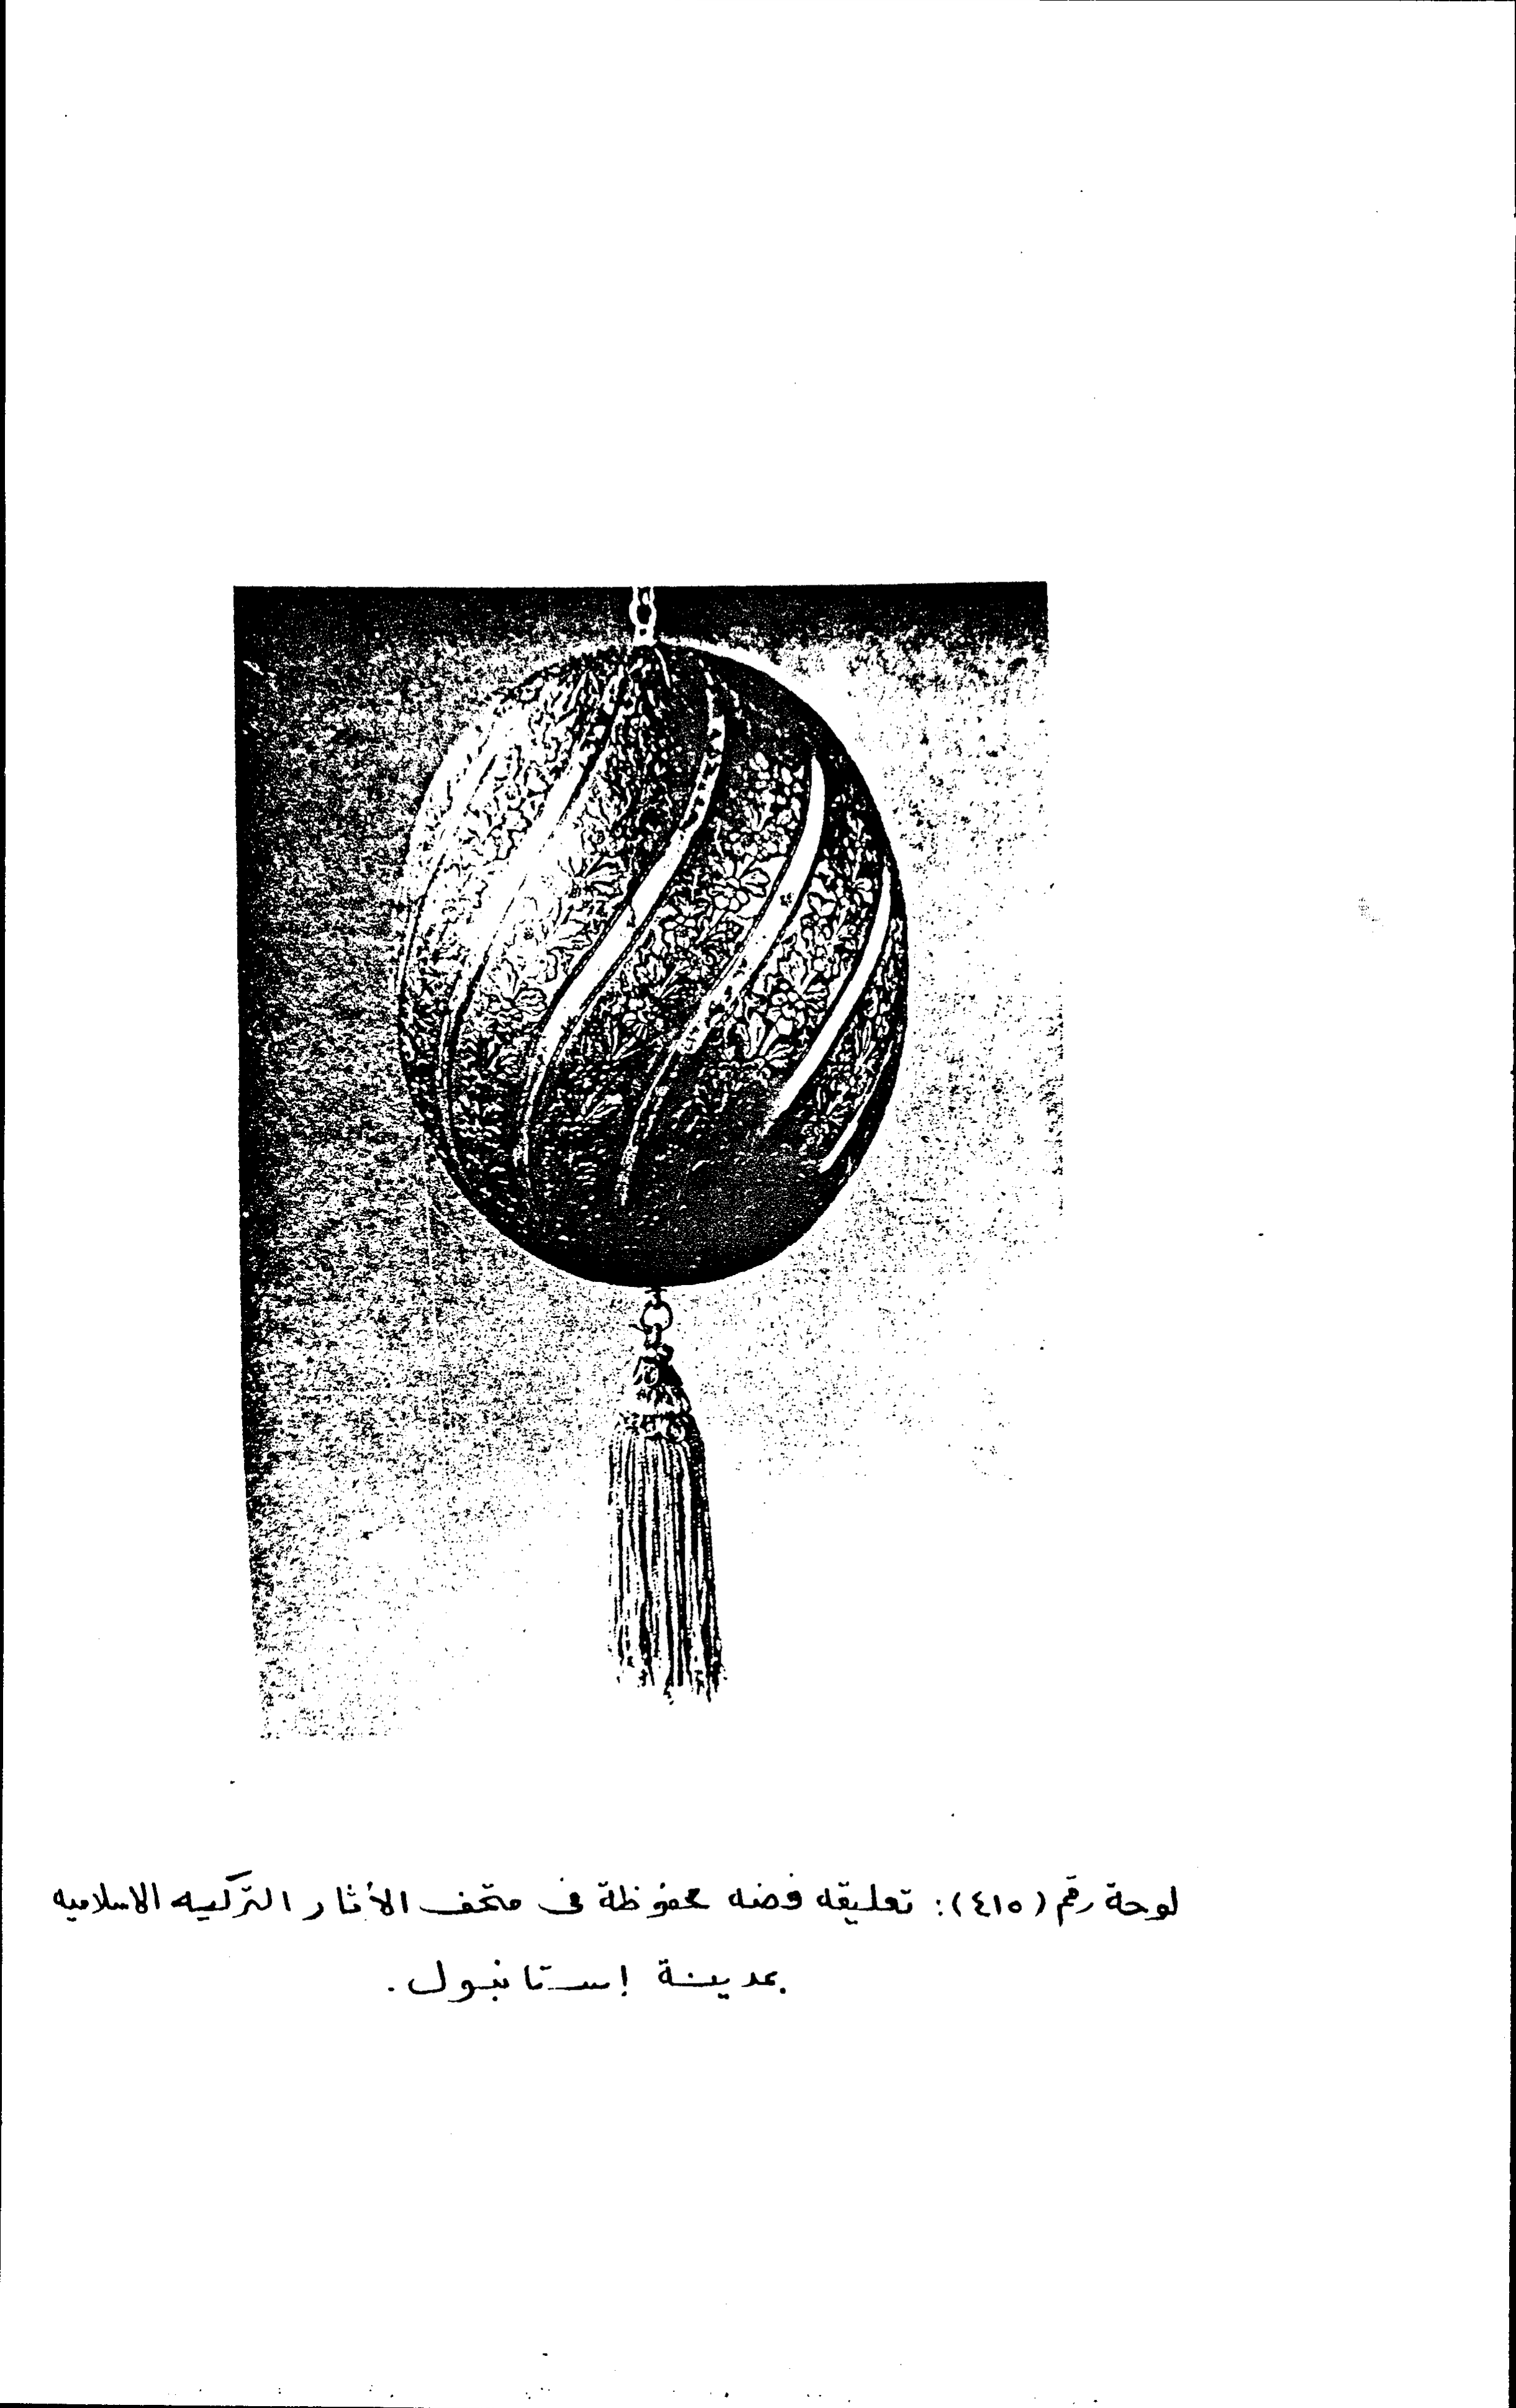 لوحة رقم (٤١٥): تعليقه فضه محفوظة فى متحف الأثار التركيه الاسلاميه
بمدينة إستانبول.